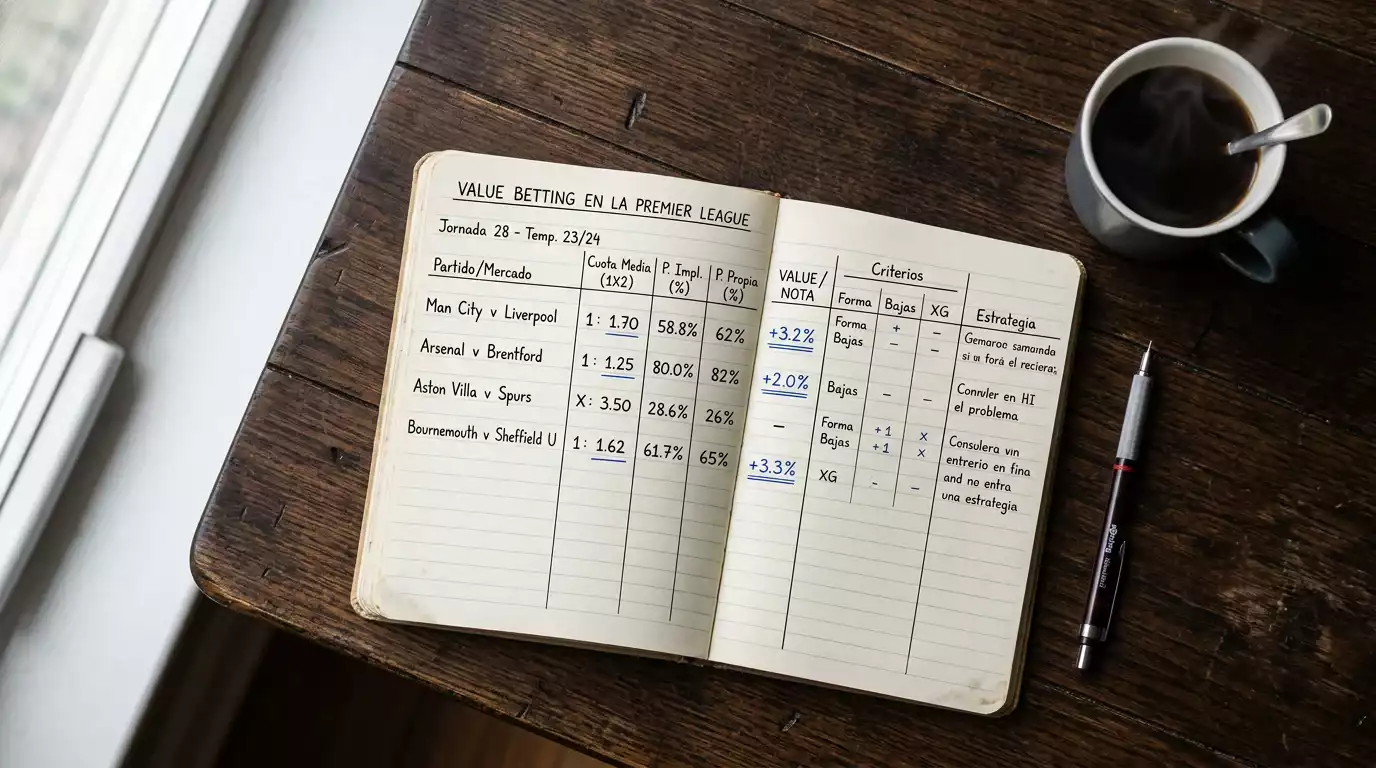 VALUE BETTING EN LA PREMIER LEAGUE
Jornada 28 - Temp. 23/24
Partido/Mercado
Cuota Media
(1X2)
P. Impl.
(%)
P. Propia
(%)
Man City v Liverpool
1: 1.70
58.8%
62%
Arsenal v Brentford
1: 1.25
80.0%
82%
Aston Villa v Spurs
X: 3.50
28.6%
26%
Bournemouth v Sheffield U
1: 1.62
61.7%
65%
VALUE/
NOTA
Criterios
Forma
Bajas
XG
Estrategia
+3.2%
Forma + -
Bajas - -
+2.0%
Bajas - -
-
Forma +1 x
Bajas +1 x
+3.3%
XG - -
si el
Conruler en HI
el problema
Consulera
entrerio en fina
and no entra
una estrategia